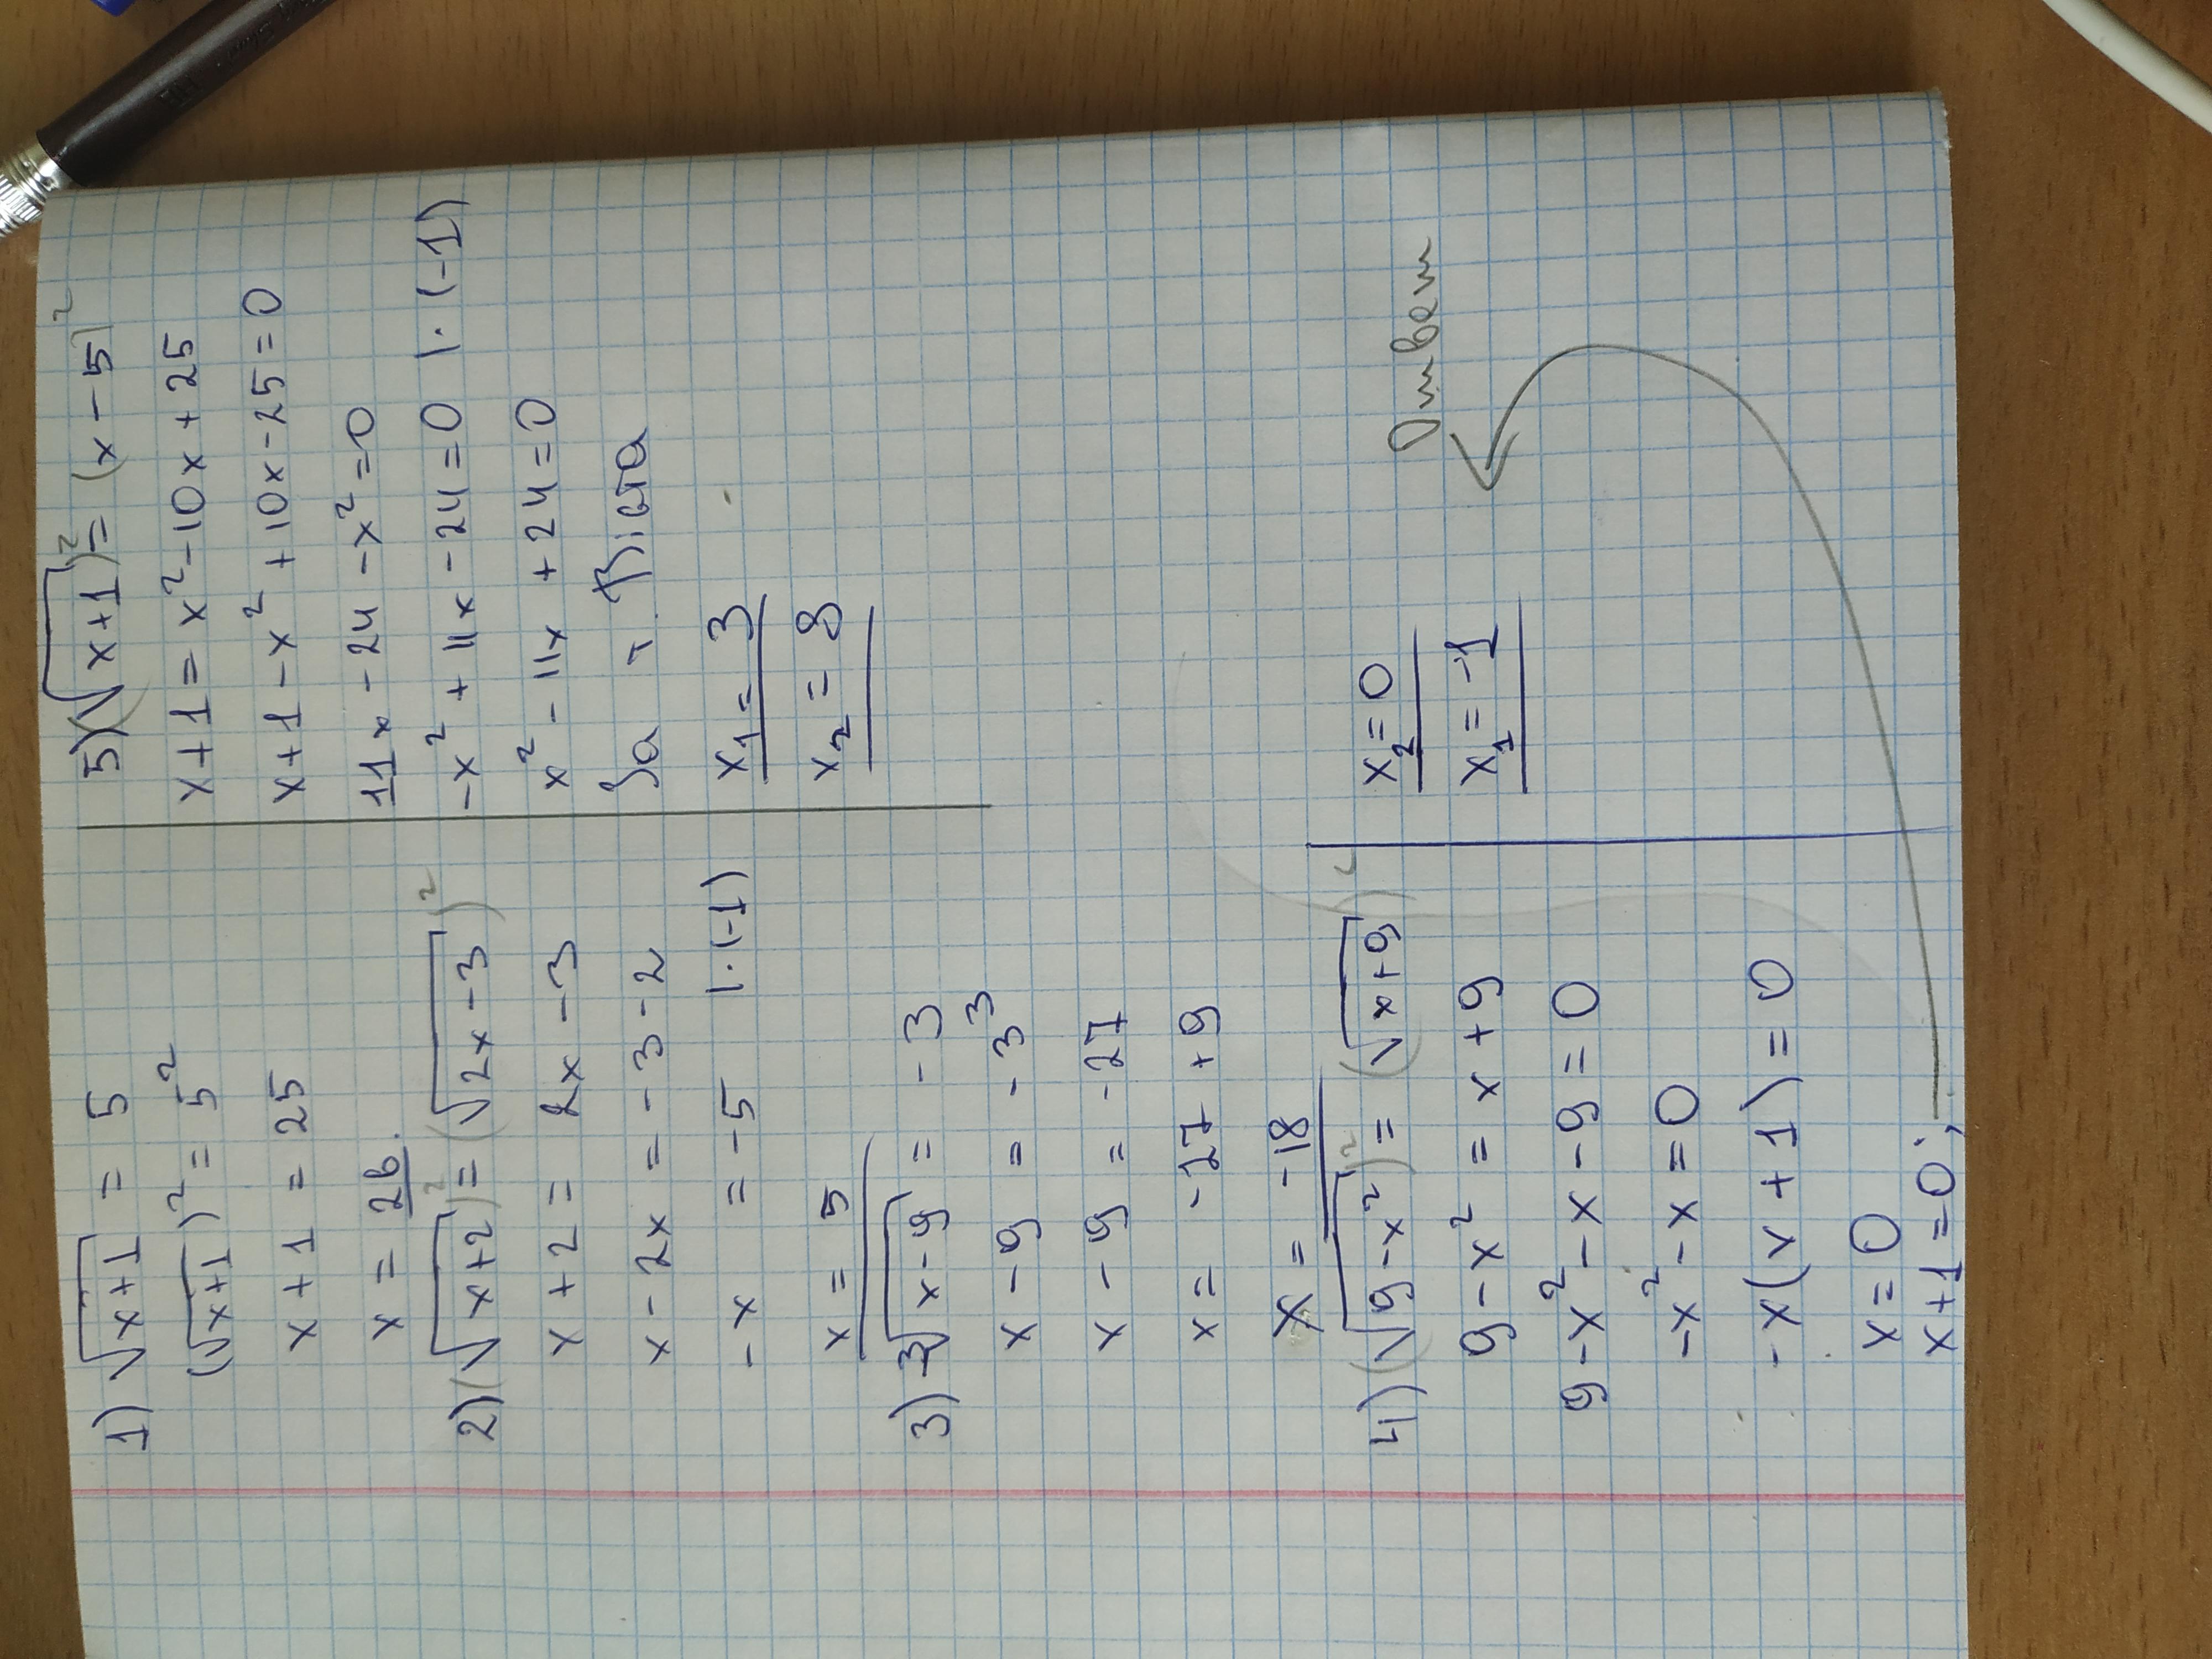 1) √x+1 = 5
(√x+1)² = 5²
x + 1 = 25
x = 26.
2) (√x+2)² = (√2x-3)²
x + 2 = 2x - 3
x - 2x = -3 - 2
-x = -5 |·(-1)
x = 5
3) ³√x-9 = -3
x - 9 = -3³
x - 9 = -27
x = -27 + 9
x = -18
4) (√9-x²)² = (√x+9)²
9 - x² = x + 9
9 - x² - x - 9 = 0
-x² - x = 0
-x(x + 1) = 0
x = 0
x + 1 = 0;
5) (√x+1)² = (x - 5)²
x + 1 = x² - 10x + 25
x + 1 - x² + 10x - 25 = 0
11x - 24 - x² = 0
-x² + 11x - 24 = 0 |·(-1)
x² - 11x + 24 = 0
За т. Вієта
x₁ = 3
x₂ = 8
x₂ = 0
x₁ = -1
Ответ